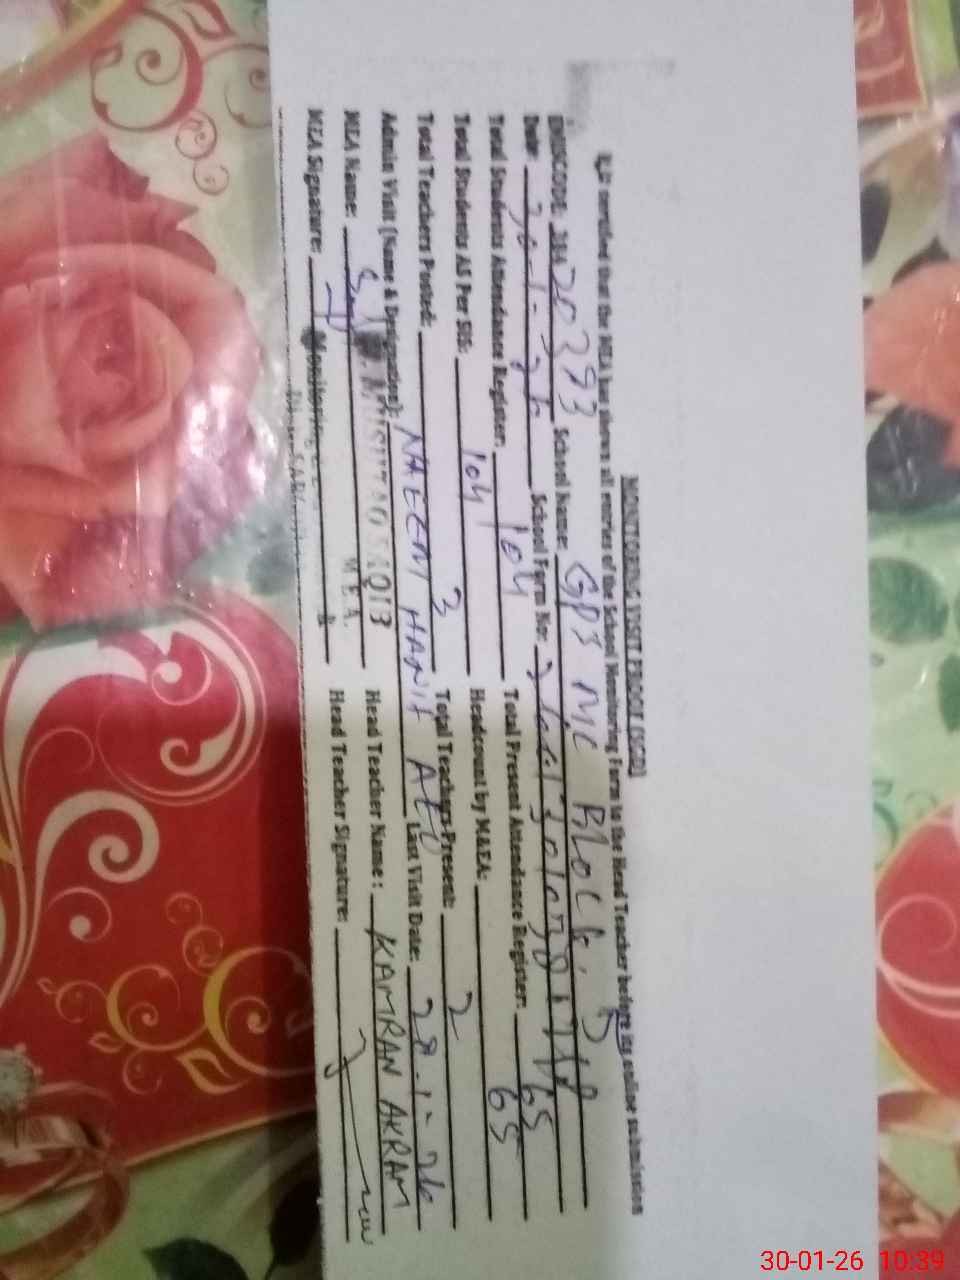 MONITORING VISIT PROOF (SCH)
It is certified that the MEA has shown all entries of the School Monitoring Form to the Head Teacher before its online submission
EMISCODE: 38420393 School Name: GPS MC Block.
Date: 30-1-26 School Form No:
Total Students Attendance Register: 104 Total Present Attendance Register: 65
Total Students AS Per SIS: 104 Headcount by M&EA: 65
Total Teachers Posted: 3 Total Teachers Present: 2
Admin Visit (Name & Designation): NAEEM HANIF AEO Last Visit Date: 28-1-26
MEA Name: M.E.A. Head Teacher Name: KAMRAN AKRAM
MEA Signature: Monitoring Head Teacher Signature:
30-01-26 10:39